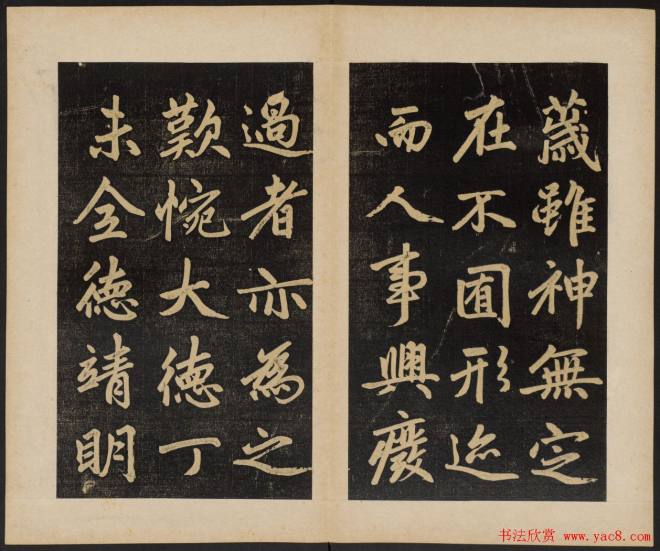 蕆雖神無定
在不囿形迹
而人事興廢
過者亦為之
歎惋大德丁
未全德靖明
书法欣赏 www.yac8.com